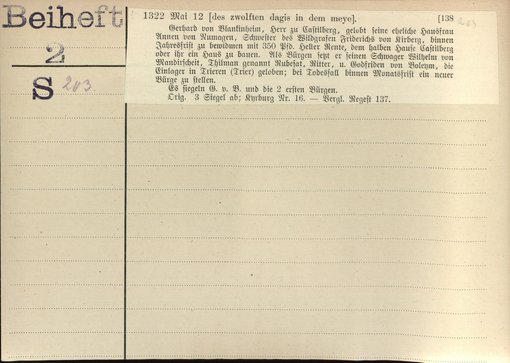 Beiheft
2
S 203
1322 Mai 12 [des zwolften dagis in dem meye]. [138 203
Gerhard von Blankinheim, Herr zu Castilberg, gelobt seine eheliche Hausfrau
Annen von Numagen, Schwester des Wildgrafen Friderichs von Kirberg, binnen
Jahresfrist zu bewidmen mit 350 Pfd. Heller Rente, dem halben Hause Castilberg
oder ihr ein Haus zu bauen. Als Bürgen setzt er seinen Schwager Wilhelm von
Mandirscheit, Thilman genannt Rubesat, Ritter, u. Godfriden von Boleym, die
Einlager in Trieren (Trier) geloben; bei Todesfall binnen Monatsfrist ein neuer
Bürge zu stellen.
Es siegeln G. v. B. und die 2 ersten Bürgen.
Orig. 3 Siegel ab; Kyrburg Nr. 16. — Vergl. Regest 137.